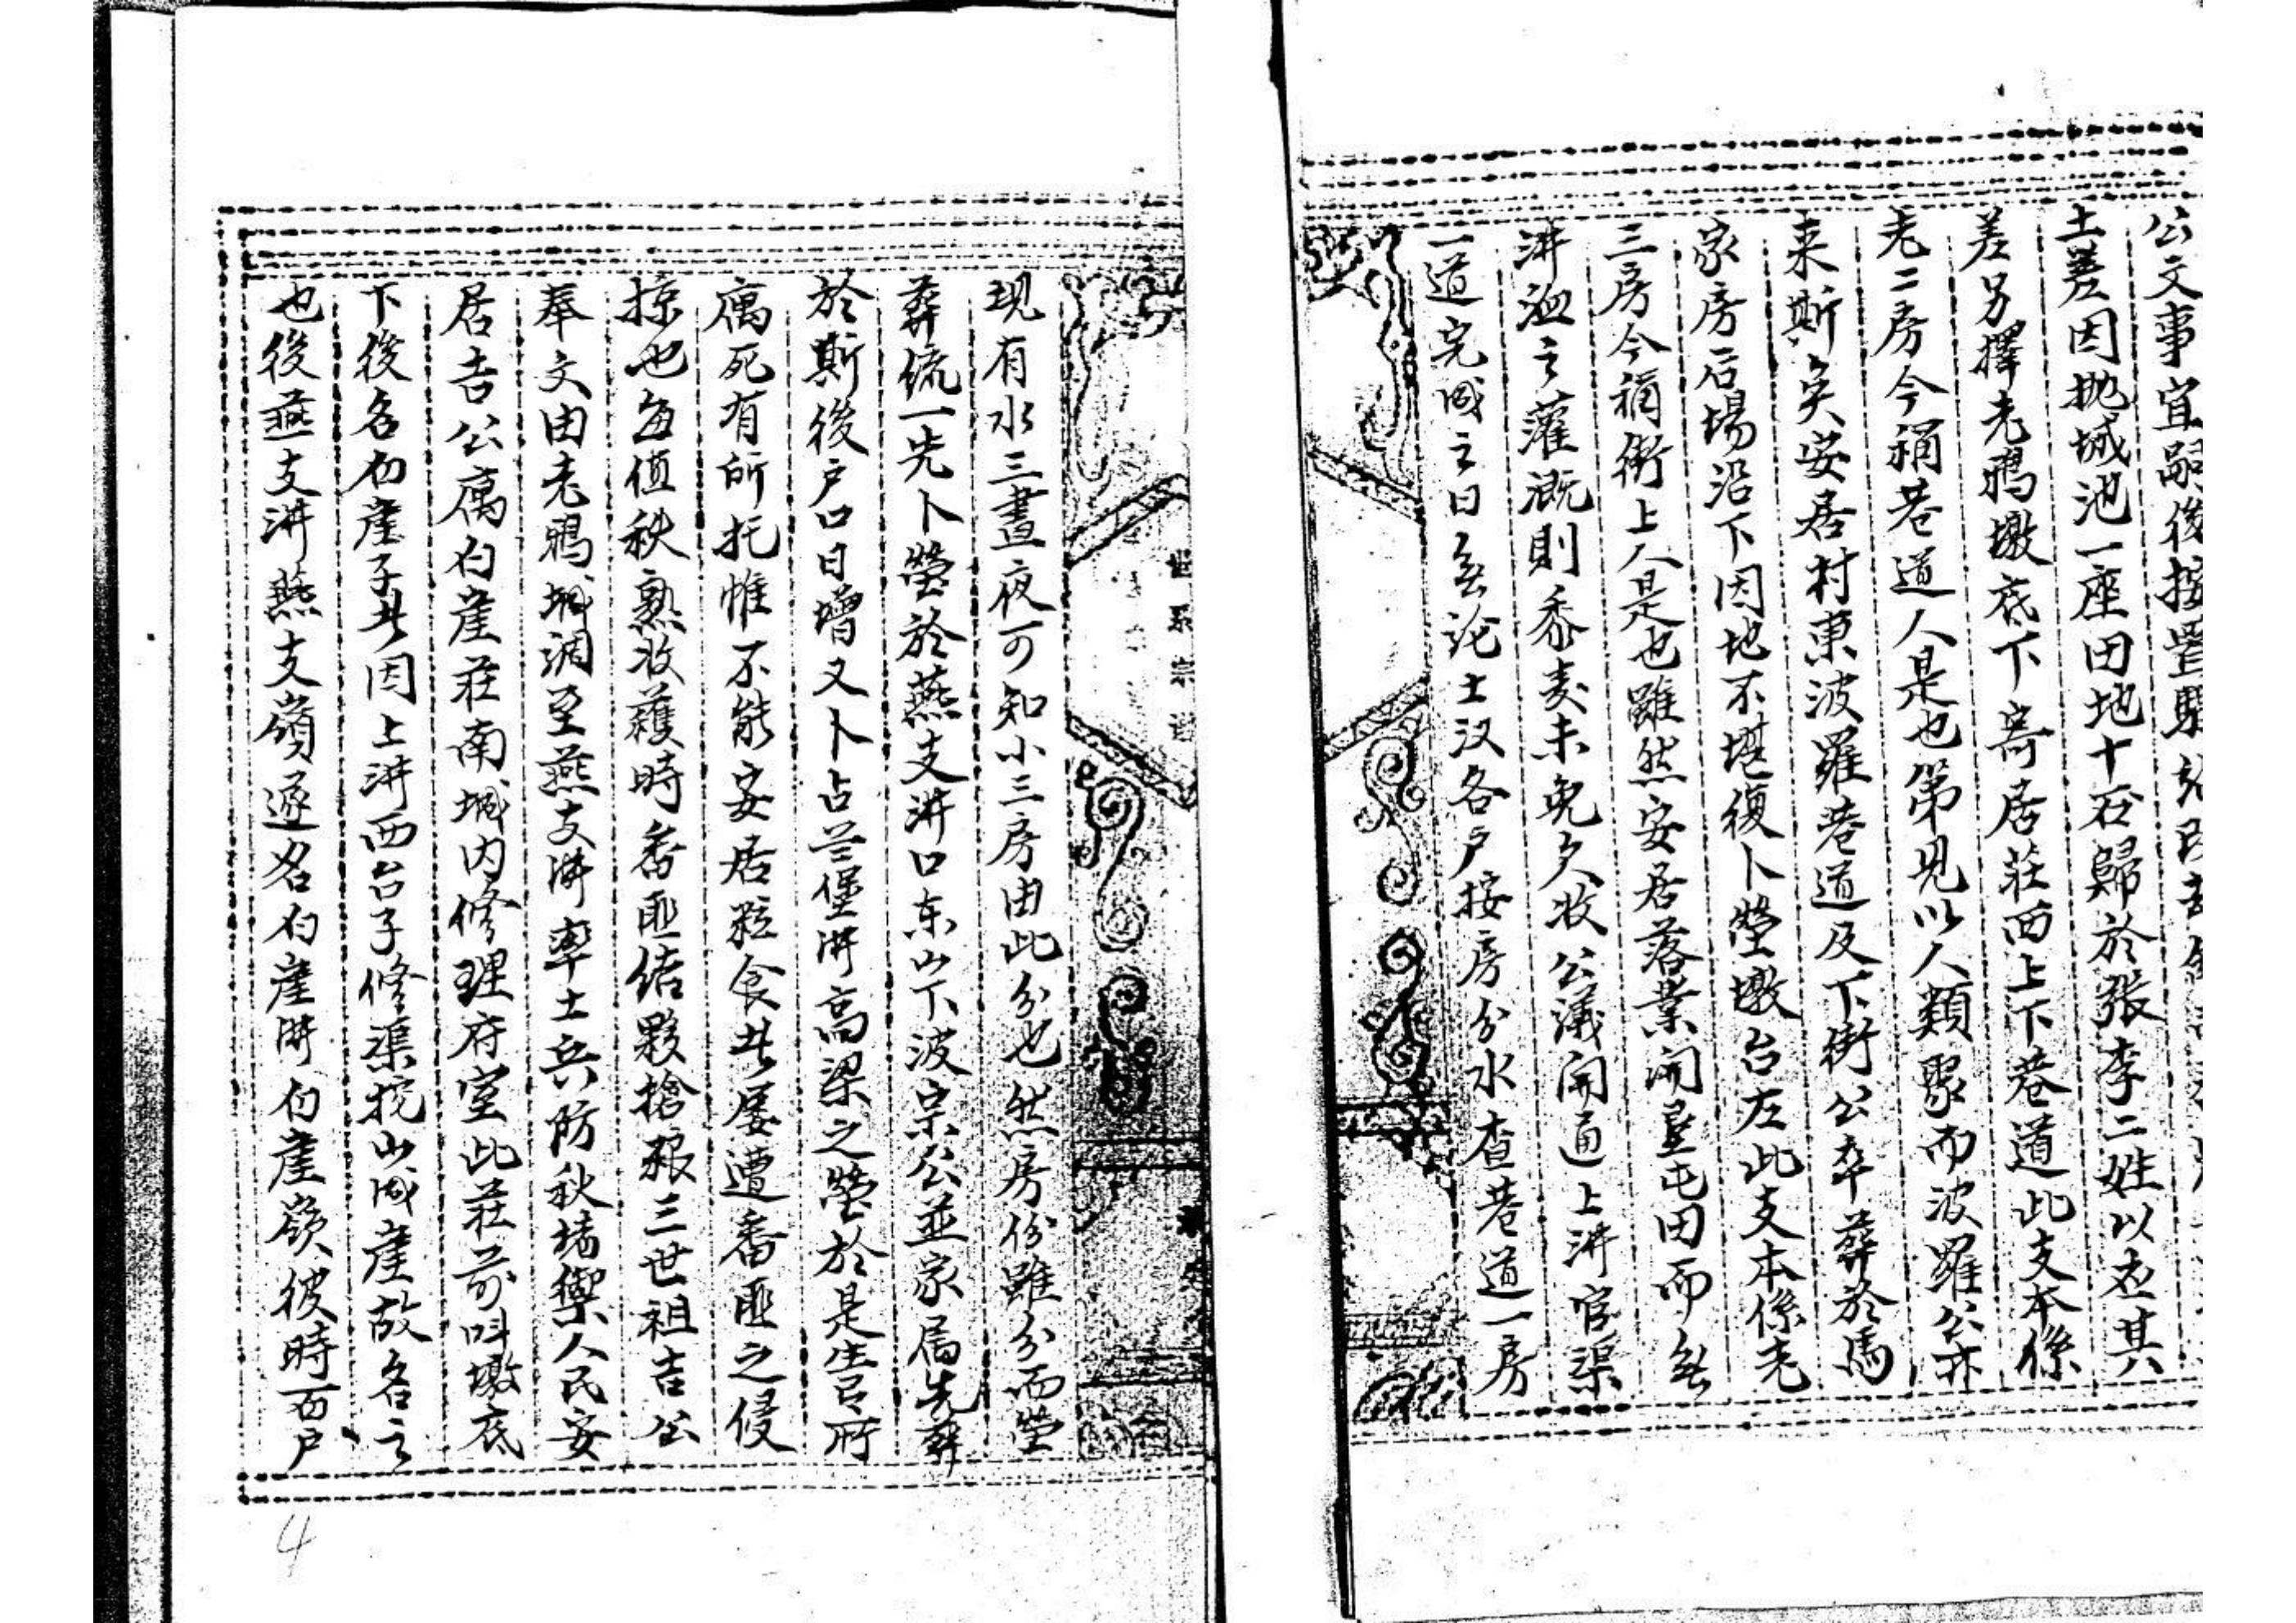 公文事宜嗣後按置驛
土差因拋城池一座田地十石歸於張李二姓以老其
差另擇老鴉墩底下寄居莊西上下巷道此支本係
老二房今稱巷道人是也第見以人類聚而波羅公亦
来斯矣安居村東波羅巷道及下街公卒葬於馬
家房后場沿下因地不堪復卜塋墩台左此支本係老
三房今稱街上人是也雖然安居落業開墾屯田而無
洴洫之灌溉則黍麦未免欠收公議開通上洴官渠
一道完成之日無論士汉各户按房分水查巷道一房
現有水三晝夜可知小三房由此分也然房份雖分而塋
葬統一先卜塋於燕支洴口东山下波宗公並家屬先葬
於斯後户口日增又卜占芸堡洴高梁之塋於是生有所
寓死有所托惟不能安居粒食者屡遭番匪之侵
掠也每值秋熟收穫時番匪结夥搶粮三世祖吉公
奉文由老鴉城調至燕支洴率土兵防秋堵禦人民安
居吉公寓白崖莊南城内修理府室此莊前叫墩底
下後名白崖子者因上洴西台子修渠挖山成崖故名之
也後燕支洴燕支嶺遂名白崖洴白崖嶺彼時百户
世系宗谱
4